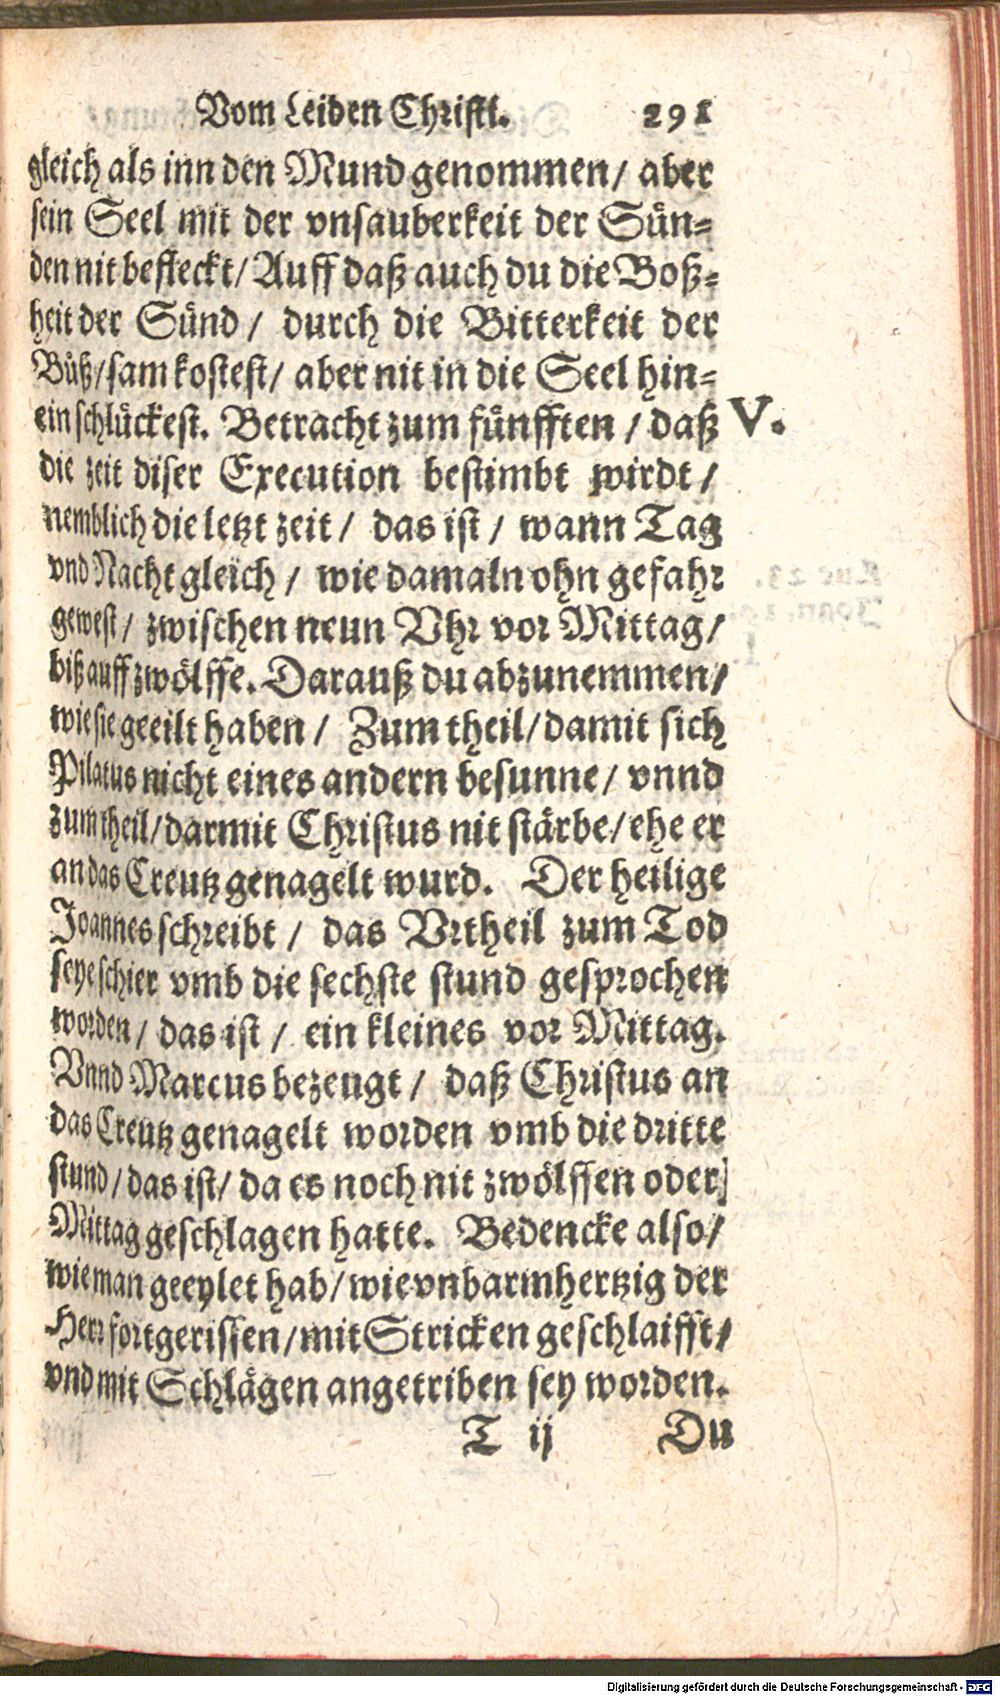 Vom Leiden Christi. 291
gleich als inn den Mund genommen/ aber
sein Seel mit der vnsauberkeit der Sün-
den nit befleckt/ Auff daß auch du die Boß-
heit der Sünd/ durch die Bitterkeit der
Büß/ sam kostest/ aber nit in die Seel hin-
ein schlückest. Betracht zum fünfften / daß V.
die zeit diser Execution bestimbt wirdt/
nemblich die letzt zeit/ das ist / wann Tag
vnd Nacht gleich / wie damaln ohn gefahr
gewest/ zwischen neun Vhr vor Mittag/
biß auff zwölffe. Darauß du abzunemmen/
wie sie geeilt haben / Zum theil/ damit sich
Pilatus nicht eines andern besunne/ vnnd
zum theil/ darmit Christus nit stärbe/ ehe er
an das Creutz genagelt wurd. Der heilige
Joannes schreibt / das Vrtheil zum Tod
seye schier vmb die sechste stund gesprochen
worden/ das ist / ein kleines vor Mittag.
Vnnd Marcus bezeugt / daß Christus an
das Creutz genagelt worden vmb die dritte
stund/ das ist/ da es noch nit zwölffen oder
Mittag geschlagen hatte. Bedencke also/
wie man geeylet hab/ wie vnbarmhertzig der
Herr fortgerissen/ mit Stricken geschlaifft/
vnd mit Schlägen angetriben sey worden.
T ij Du
Digitalisierung gefördert durch die Deutsche Forschungsgemeinschaft - DFG